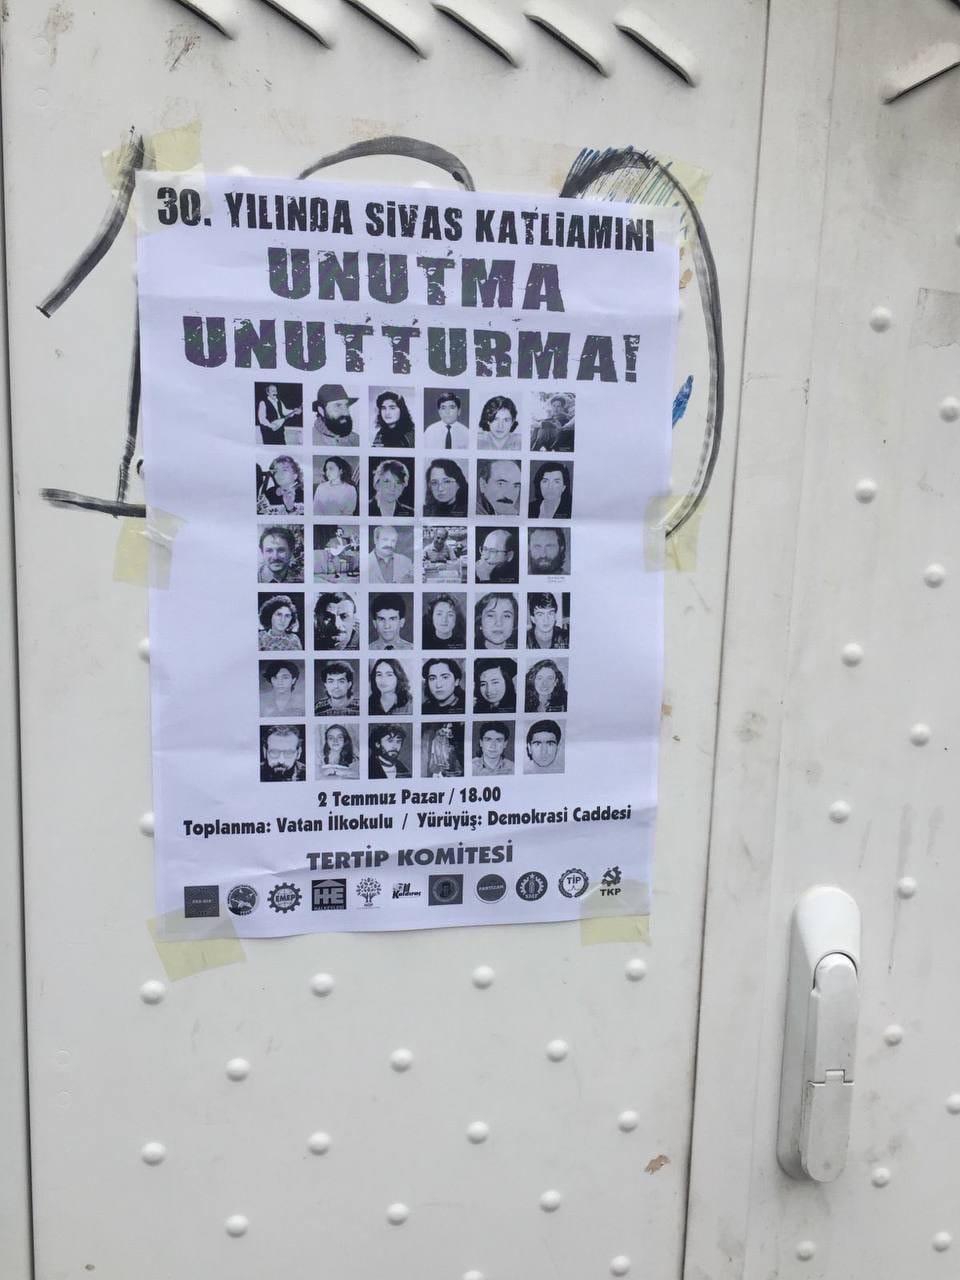 30. YILINDA SİVAS KATLİAMINI
UNUTMA
UNUTTURMA!
2 Temmuz Pazar / 18.00
Toplanma: Vatan İlkokulu / Yürüyüş: Demokrasi Caddesi
TERTİP KOMİTESİ
EMEP
HALKEVLERİ
HDP
Kaldıraç
PARTİZAN
SMF
TİP
TKP